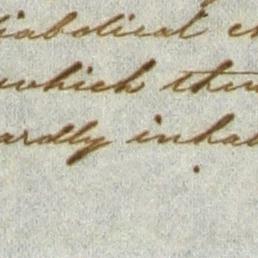 iabolical c
which the
ardly inhab